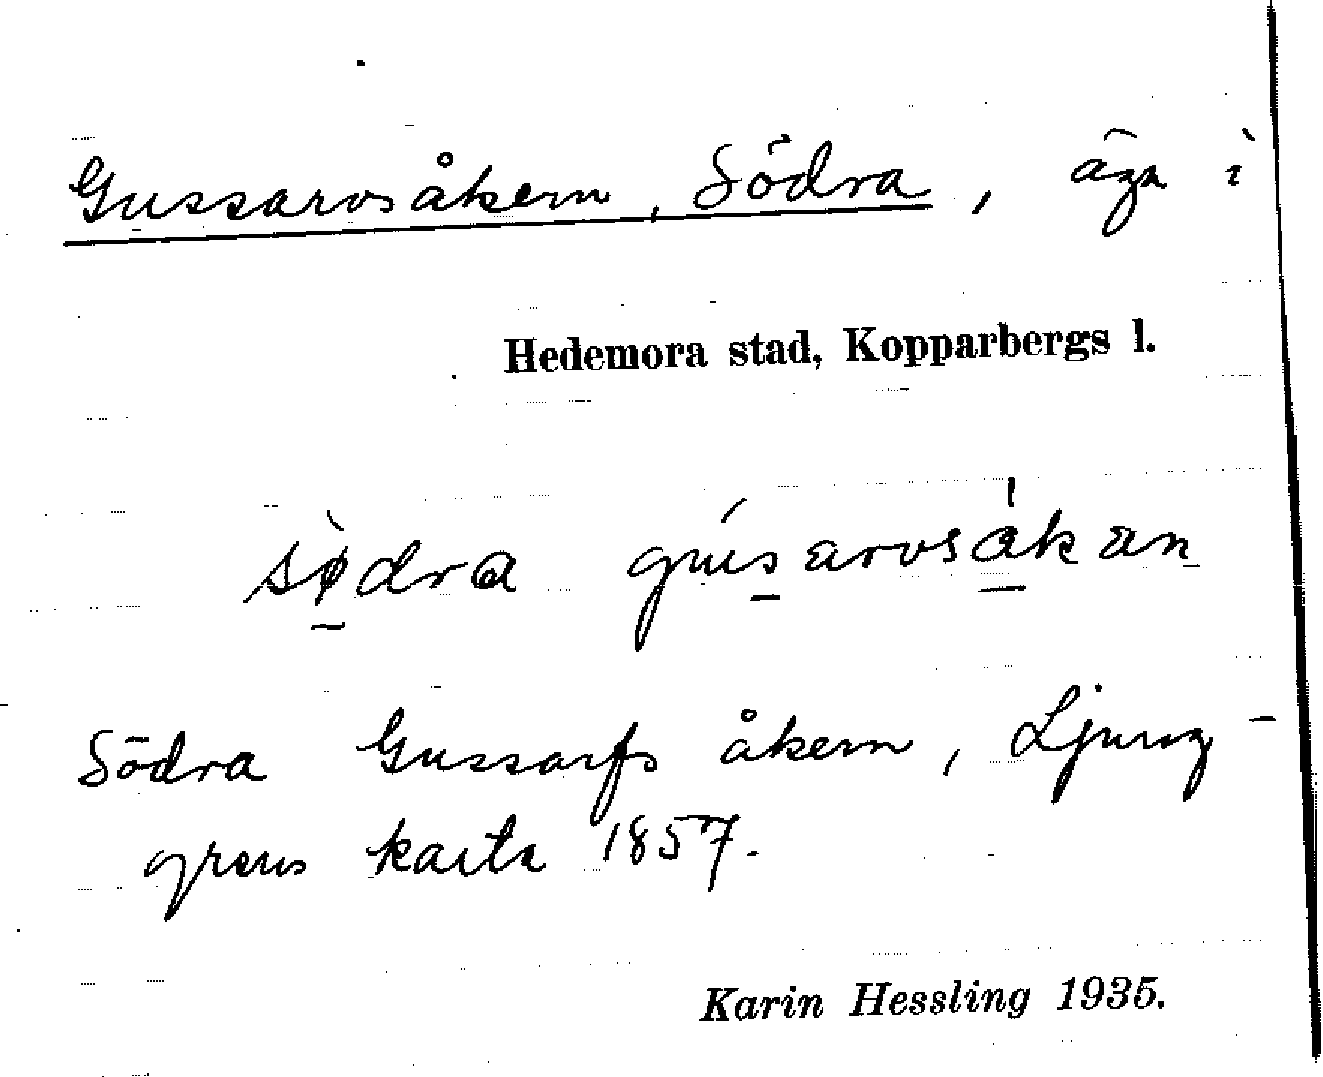 Gussarvsåkern, Södra, äga i
Hedemora stad, Kopparbergs l.
sø̀dra gúsarvsåkan
Södra Gussarfs åkern, Ljung-
grens karta 1857.
Karin Hessling 1935.